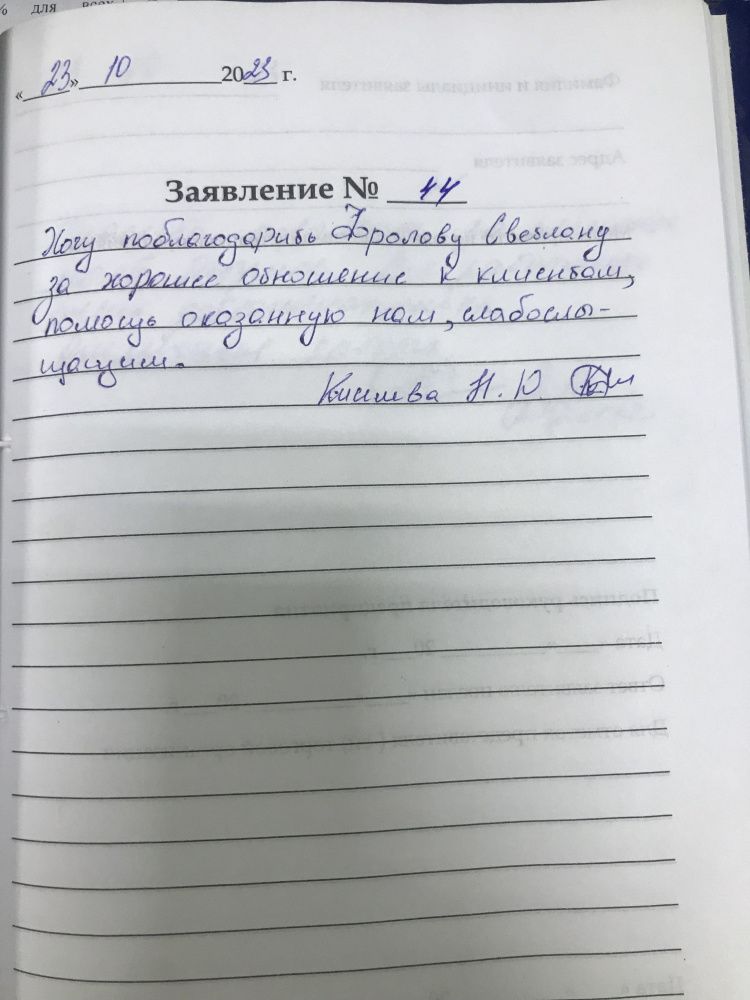 % для всех
« 23 » 10 2023 г.
Заявление № 44
Хочу поблагодарить Фролову Светлану
за хорошее отношение к клиентам,
помощь оказанную нам, слабослы-
щащим.
Н. Ю